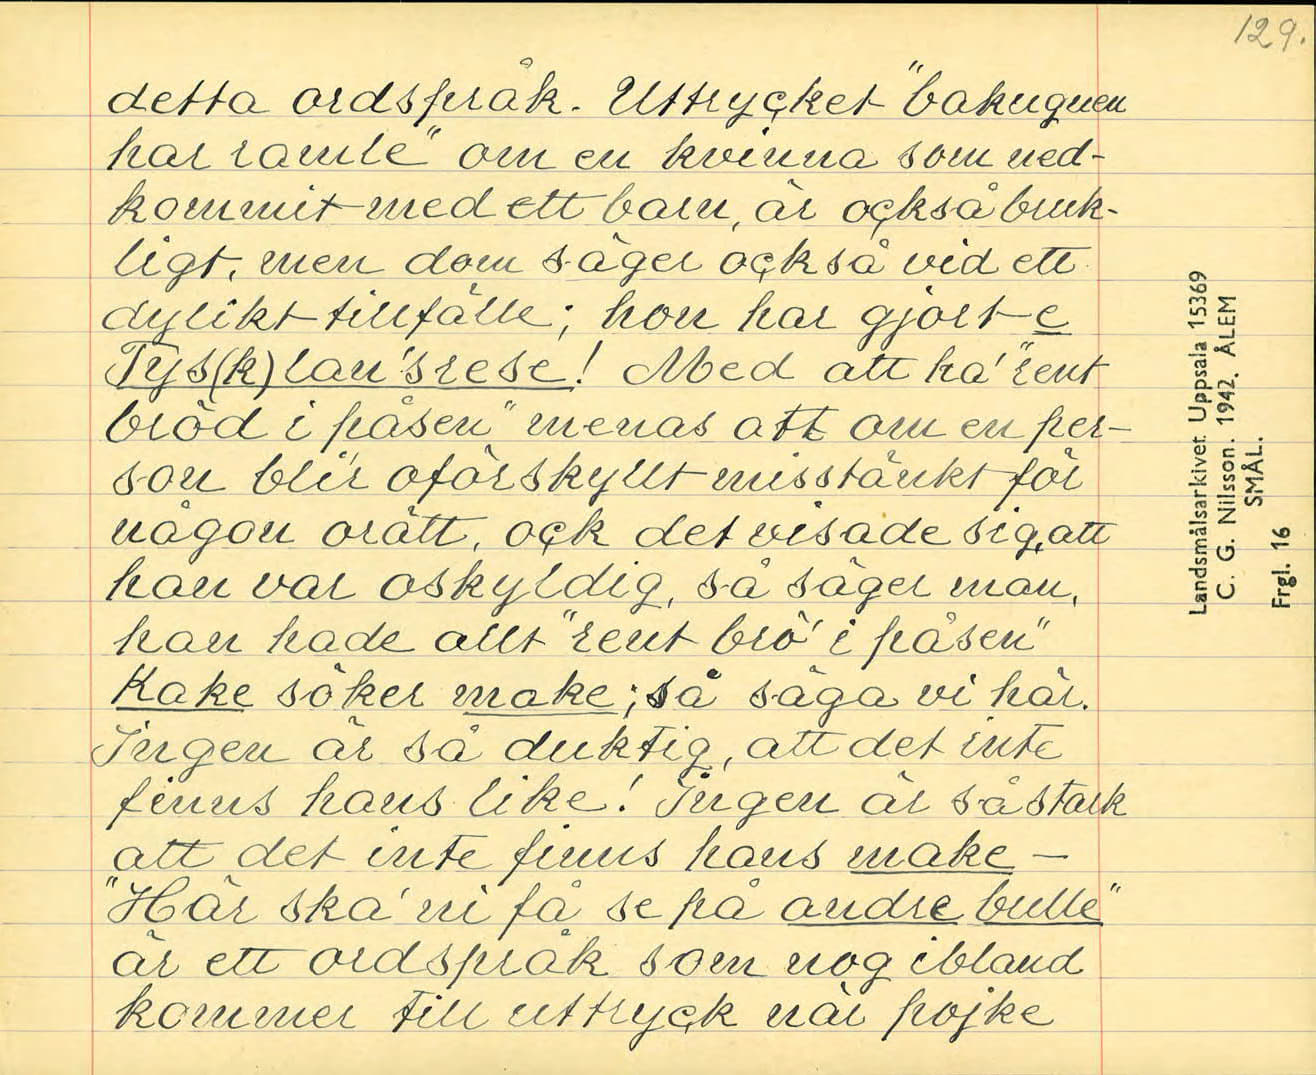 129.
detta ordspråk. Uttrycket "bakugnen
har ramle" om en kvinna som ned-
kommit med ett barn, är också bruk-
ligt, men dom säger också vid ett
dylikt tillfälle; hon har gjort e
Tys(k)lan'srese! Med att ha' "rent
bröd i påsen" menas att om en per-
son bli'r oförskyllt misstänkt för
någon orätt, ock det visade sig, att
han var oskyldig, så säger man,
han hade allt "rent brö' i påsen"
Kake söker make; så säga vi här.
Ingen är så duktig, att det inte
finns hans like! Ingen är så stark
att det inte finns hans make —
"Här ska' ni få se på andre bulle"
är ett ordspråk som nog ibland
kommer till uttryck när pojke
Landsmålsarkivet Uppsala 15369
C. G. Nilsson. 1942. ÅLEM
SMÅL.
Frgl. 16